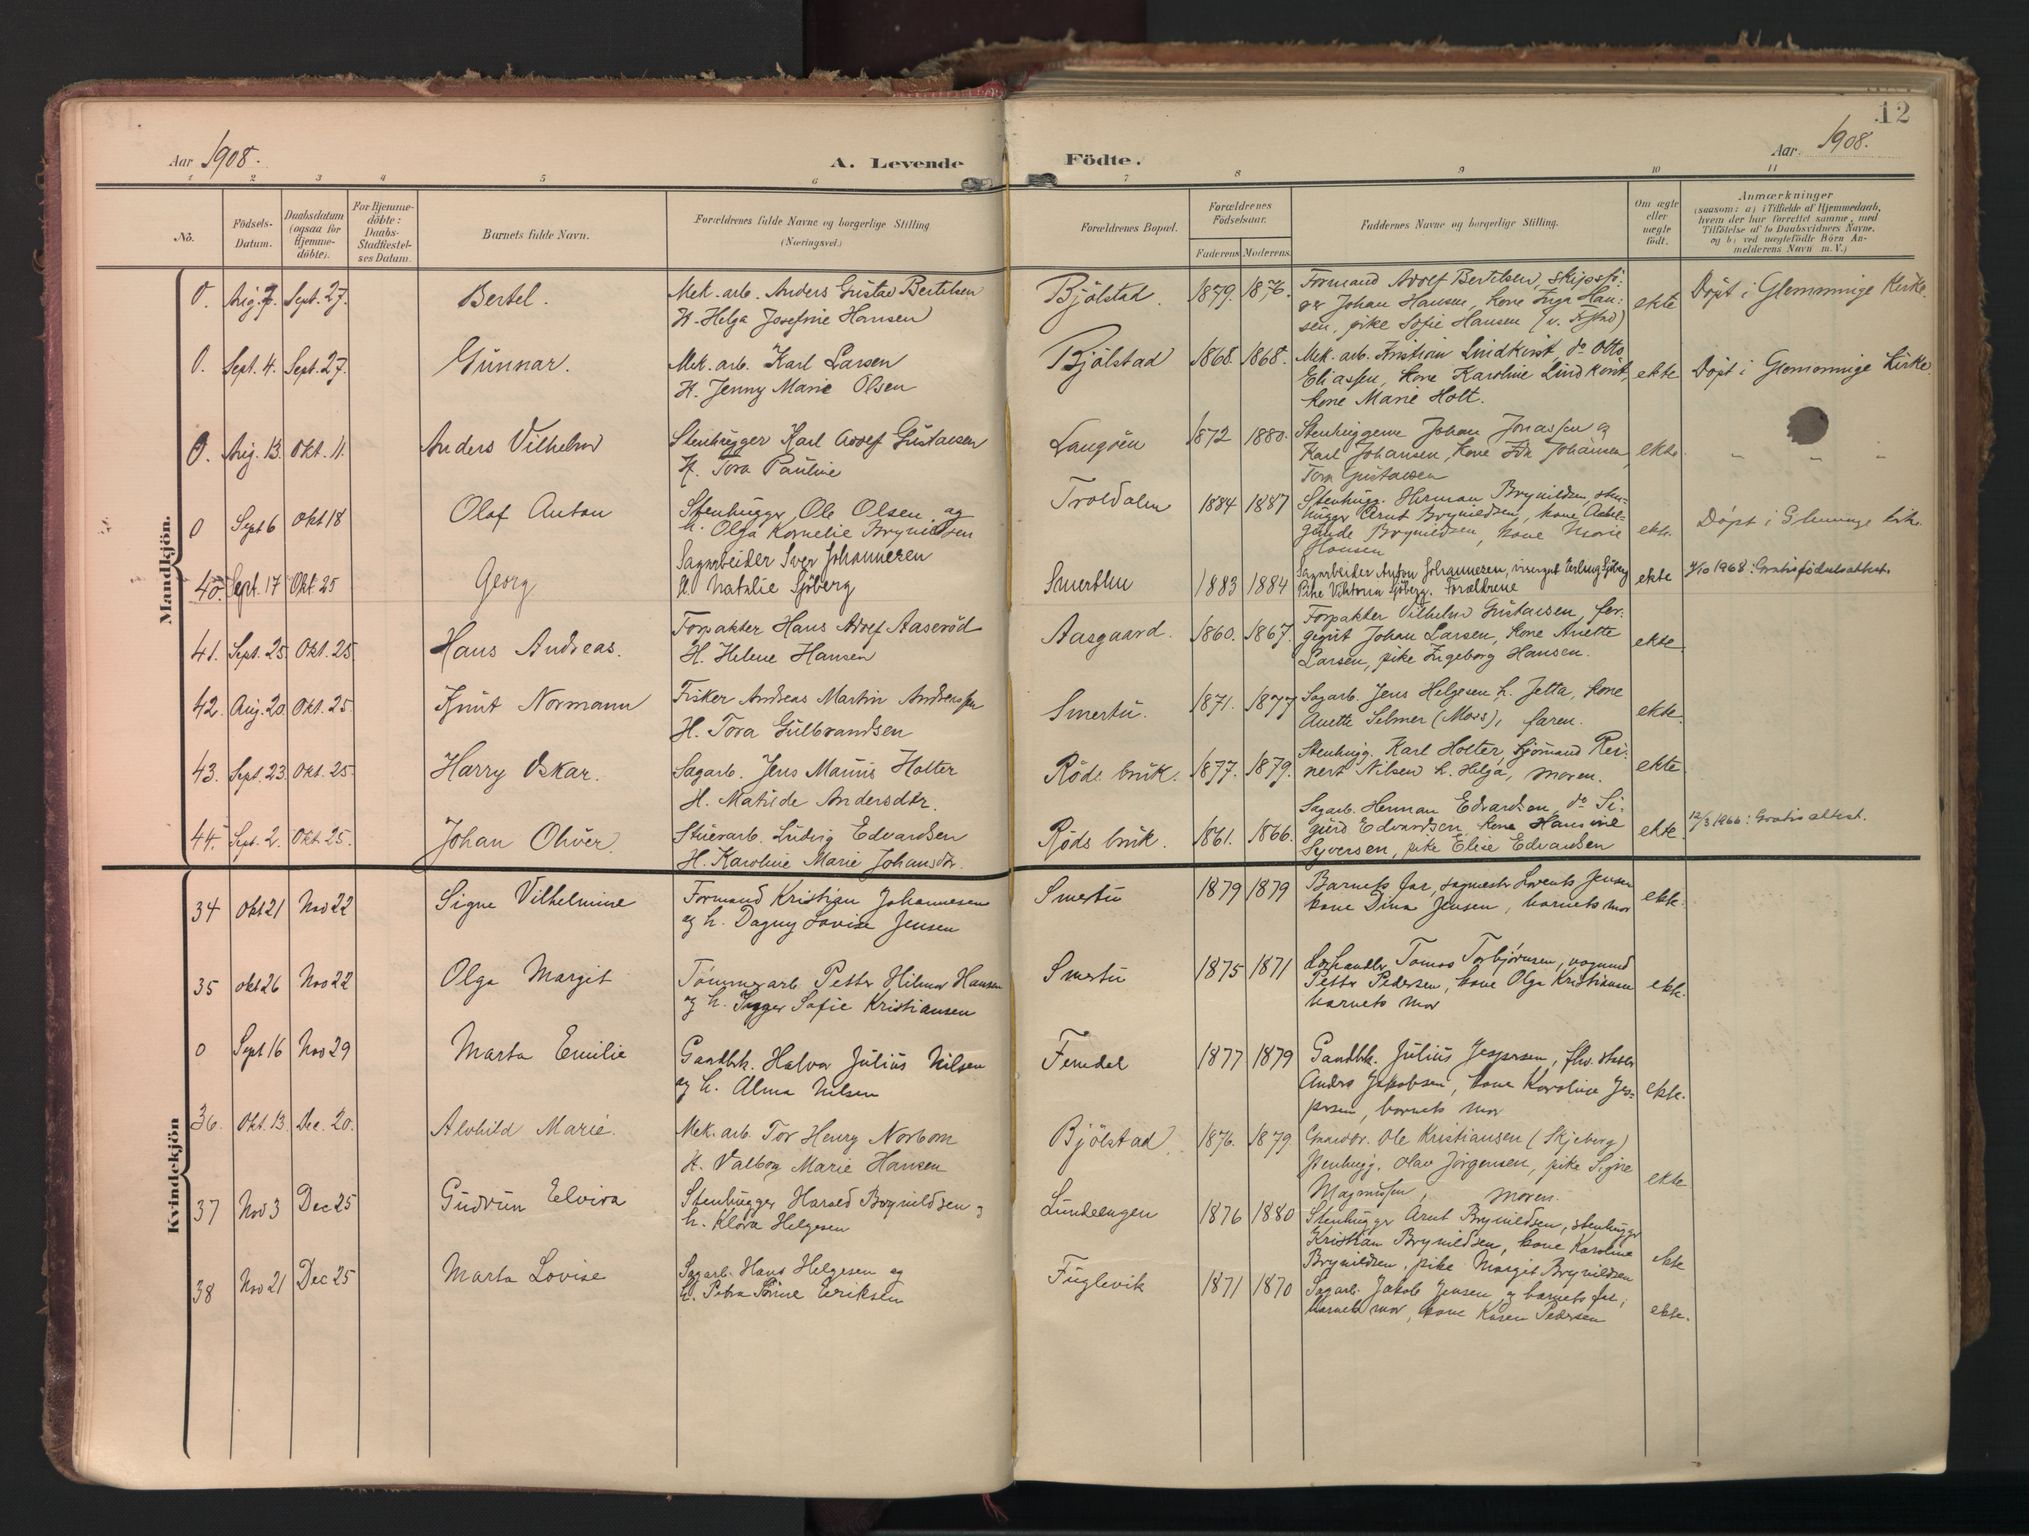 12
Aar 1908.
A. Levende
Födte.
Aar. 1908.
1 2 3 4 5 6 7 8 9 10 11
No.
Födsels-
Datum.
Daabsdatum
(ogsaa for
Hjemme-
döbte).
For Hjemme-
döbte:
Daabs-
Stadfæstel-
ses Datum.
Barnets fulde Navn.
Forældrenes fulde Navne og borgerlige Stilling
(Næringsvei.)
Forældrenes Bopæl.
Forældrenes
Födselsaar.
Faderens Moderens.
Faddernes Navne og borgerlige Stilling.
Om ægte
eller
uægte
födt.
Anmærkninger
(saasom: a) i Tilfælde af Hjemmedaab,
hvem der har forrettet samme, med
Tilföielse af to Daabsvidners Navne,
og b) ved uægtefödte Börn An-
melderens Navn m. V.)
Mandkjön.
0. Aug. 7. Sept. 27. Bertel. Mek. arb. Anders Gustav Bertelsen
H. Helga Josefine Hansen
Bjölstad. 1879. 1876. Formand Adolf Bertelsen, skipsfö-
rer Johan Hansen, kone Inga Han-
sen, pike Sofie Hansen
ekte Döpt i Glemminge Kirke.
0. Sept. 4. Sept. 27. Gunnar. Mek. arb. Karl Larsen
H. Jenny Marie Olsen
Bjölstad 1868. 1868. Mek. arb. Kristian Lindkvist, do Otto
Eliassen, kone Karoline Lindkvist,
kone Marie Holt.
ekte Döpt i Glemminge Kirke.
0. Aug. 13. Okt. 11. Anders Vilhelm Stenhugger Karl Adolf Gustavsen
H. Tora Pauline
Langöen 1872 1880. Stenhuggerne Johan Jonassen og
Karl Johansen, kone Ida Johansen,
Tora Gustavsen
ekte. " " "
0 Sept 6 Okt 18 Olaf Anton Stenhugger Ole Olsen og
h. Olga Kornelie Brynildsen
Troldalen 1884 1887 Stenhugg. Herman Brynildsen, sten-
hugger Arnt Brynildsen, kone
Brynildsen, kone Marie
Hansen
ekte. Döpt i Glemminge kirke.
40. Sept. 17 Okt. 25 Georg Sagarbeider Iver Johannesen
H. Natalie Sjöberg
1883 1884 Sagarbeider Anton Johannesen, visergut Erling Sjöberg
Pike Viktoria Sjöberg. Forældrene
ekte 1/10 1968: Gratis födselsattest.
41. Sept. 25. Okt. 25. Hans Andreas. Forpakter Hans Adolf Aaseröd
H. Helene Hansen
Aasgaard. 1860. 1867. Forpakter Vilhelm Gustavsen, for-
Johan Larsen, kone Anette
Larsen, pike Ingeborg Hansen.
ekte.
42. Aug. 20. Okt. 25. Knut Normann Fisker Andreas Martin Andreassen
H. Tora Gulbrandsen
Smertu. 1871. 1877 Sagarb. Jens Helgesen h. Jetta, kone
Anette Selmer (Moss), faren.
ekte.
43. Sept. 23. Okt. 25. Harry Oskar. Sagarb. Jens Mauris Holter
H. Matilde Andersdtr.
Röds bruk. 1877. 1879. Stenhugg. Karl Holter, sjömand Rei-
nert Nilsen h. Helga, moren.
ekte.
44. Sept. 2. Okt. 25. Johan Oliver. Stuerarb. Ludvig Edvardsen
H. Karoline Marie Johansdtr.
Röds bruk. 1861. 1866. Sagarb. Herman Edvardsen, do Si-
gurd Edvardsen, kone Hansine
Syversen, pike Elise Edvardsen
ekte. 12/3 1966: Gratis attest.
Kvindekjön
34 Okt 21 Nov 22 Signe Vilhelmine Formand Kristian Johannesen
og h. Dagny Lovise Jensen
Smertu 1879 1879 Barnets far, sagmester Lorents Jensen
kone Dina Jensen, barnets mor
ekte.
35 Okt 26 Nov 22 Olga Margit Tömmerarb. Petter Hilmar Hansen
og h. Inger Sofie Kristiansen
Smertu 1875 1871 Tomas Torbjörnsen, vognmd
Petter Pedersen, kone Olga Kristiansen
barnets mor
ekte.
0 Sept 16 Nov 29 Marta Emilie Gaardbk. Halvor Julius Nilsen
og h. Alma Nilsen
Femdal 1877 1879 Gaardbk. Julius Jespersen,
Anders Jakobsen, kone Karoline Jes-
persen, barnets mor
ekte.
36. Okt. 13. Dec. 20. Alvhild Marie. Mek. arb. Tor Henry Norbom
H. Valborg Marie Hansen
Bjölstad. 1876. 1879. Ole Kristiansen (Skjeberg)
Stenhugg. Olav Jörgensen, pike Signe
Magnussen, moren.
ekte.
37 Nov 3 Dec 25 Gudrun Elvira Stenhugger Harald Brynildsen og
h. Klara Helgesen
Lundeengen 1876 1880 Stenhugger Arnt Brynildsen, stenhugger
Kristian Brynildsen, kone Karoline
Brynildsen, pike Margit Brynildsen
ekte
38 Nov 21 Dec 25 Marta Lovise Sagarb. Hans Helgesen og
h. Petra Eriksen
Fuglevik 1871 1870 Sagarb. Jakob Jensen, og barnets far,
barnets mor, kone Karen Pedersen
ekte.